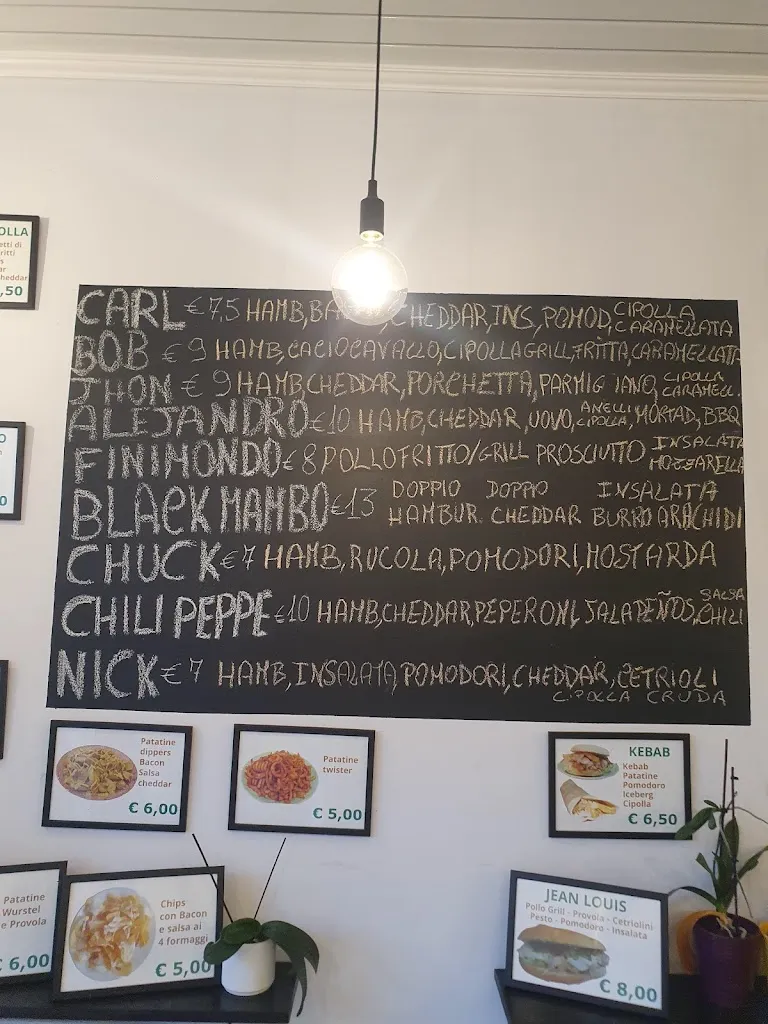 OLLA
etti di
ritti
s
ar
heddar
,50
O
0
CARL €7,5 HAMB, CHEDDAR, INS, POMOD, CIPOLLA CARAMELLATA
BOB €9 HAMB, CACIOCAVALLO, CIPOLLA GRILL, FRITTA, CARAMELLATA
JHON €9 HAMB, CHEDDAR, PORCHETTA, PARMIGIANO, CIPOLLA CARAMELL.
ALEJANDRO €10 HAMB, CHEDDAR, UOVO, ANELLI CIPOLLA, MORTAD, BBQ
FINIMONDO €8 POLLO FRITTO/GRILL PROSCIUTTO INSALATA MOZZARELLA
BLACK MAMBO €13 DOPPIO HAMBUR. DOPPIO CHEDDAR INSALATA BURRO ARACHIDI
CHUCK €7 HAMB, RUCOLA, POMODORI, MOSTARDA
CHILI PEPPE €10 HAMB, CHEDDAR, PEPERONI, JALAPEÑOS, SALSA CHILI
NICK €7 HAMB, INSALATA, POMODORI, CHEDDAR, CETRIOLI
CIPOLLA CRUDA
Patatine
dippers
Bacon
Salsa
cheddar
€ 6,00
Patatine
twister
€ 5,00
KEBAB
Kebab
Patatine
Pomodoro
Iceberg
Cipolla
€ 6,50
Patatine
Wurstel
e Provola
€ 6,00
Chips
con Bacon
e salsa ai
4 formaggi
€ 5,00
JEAN LOUIS
Pollo Grill - Provola - Cetriolini
Pesto - Pomodoro - Insalata
€ 8,00